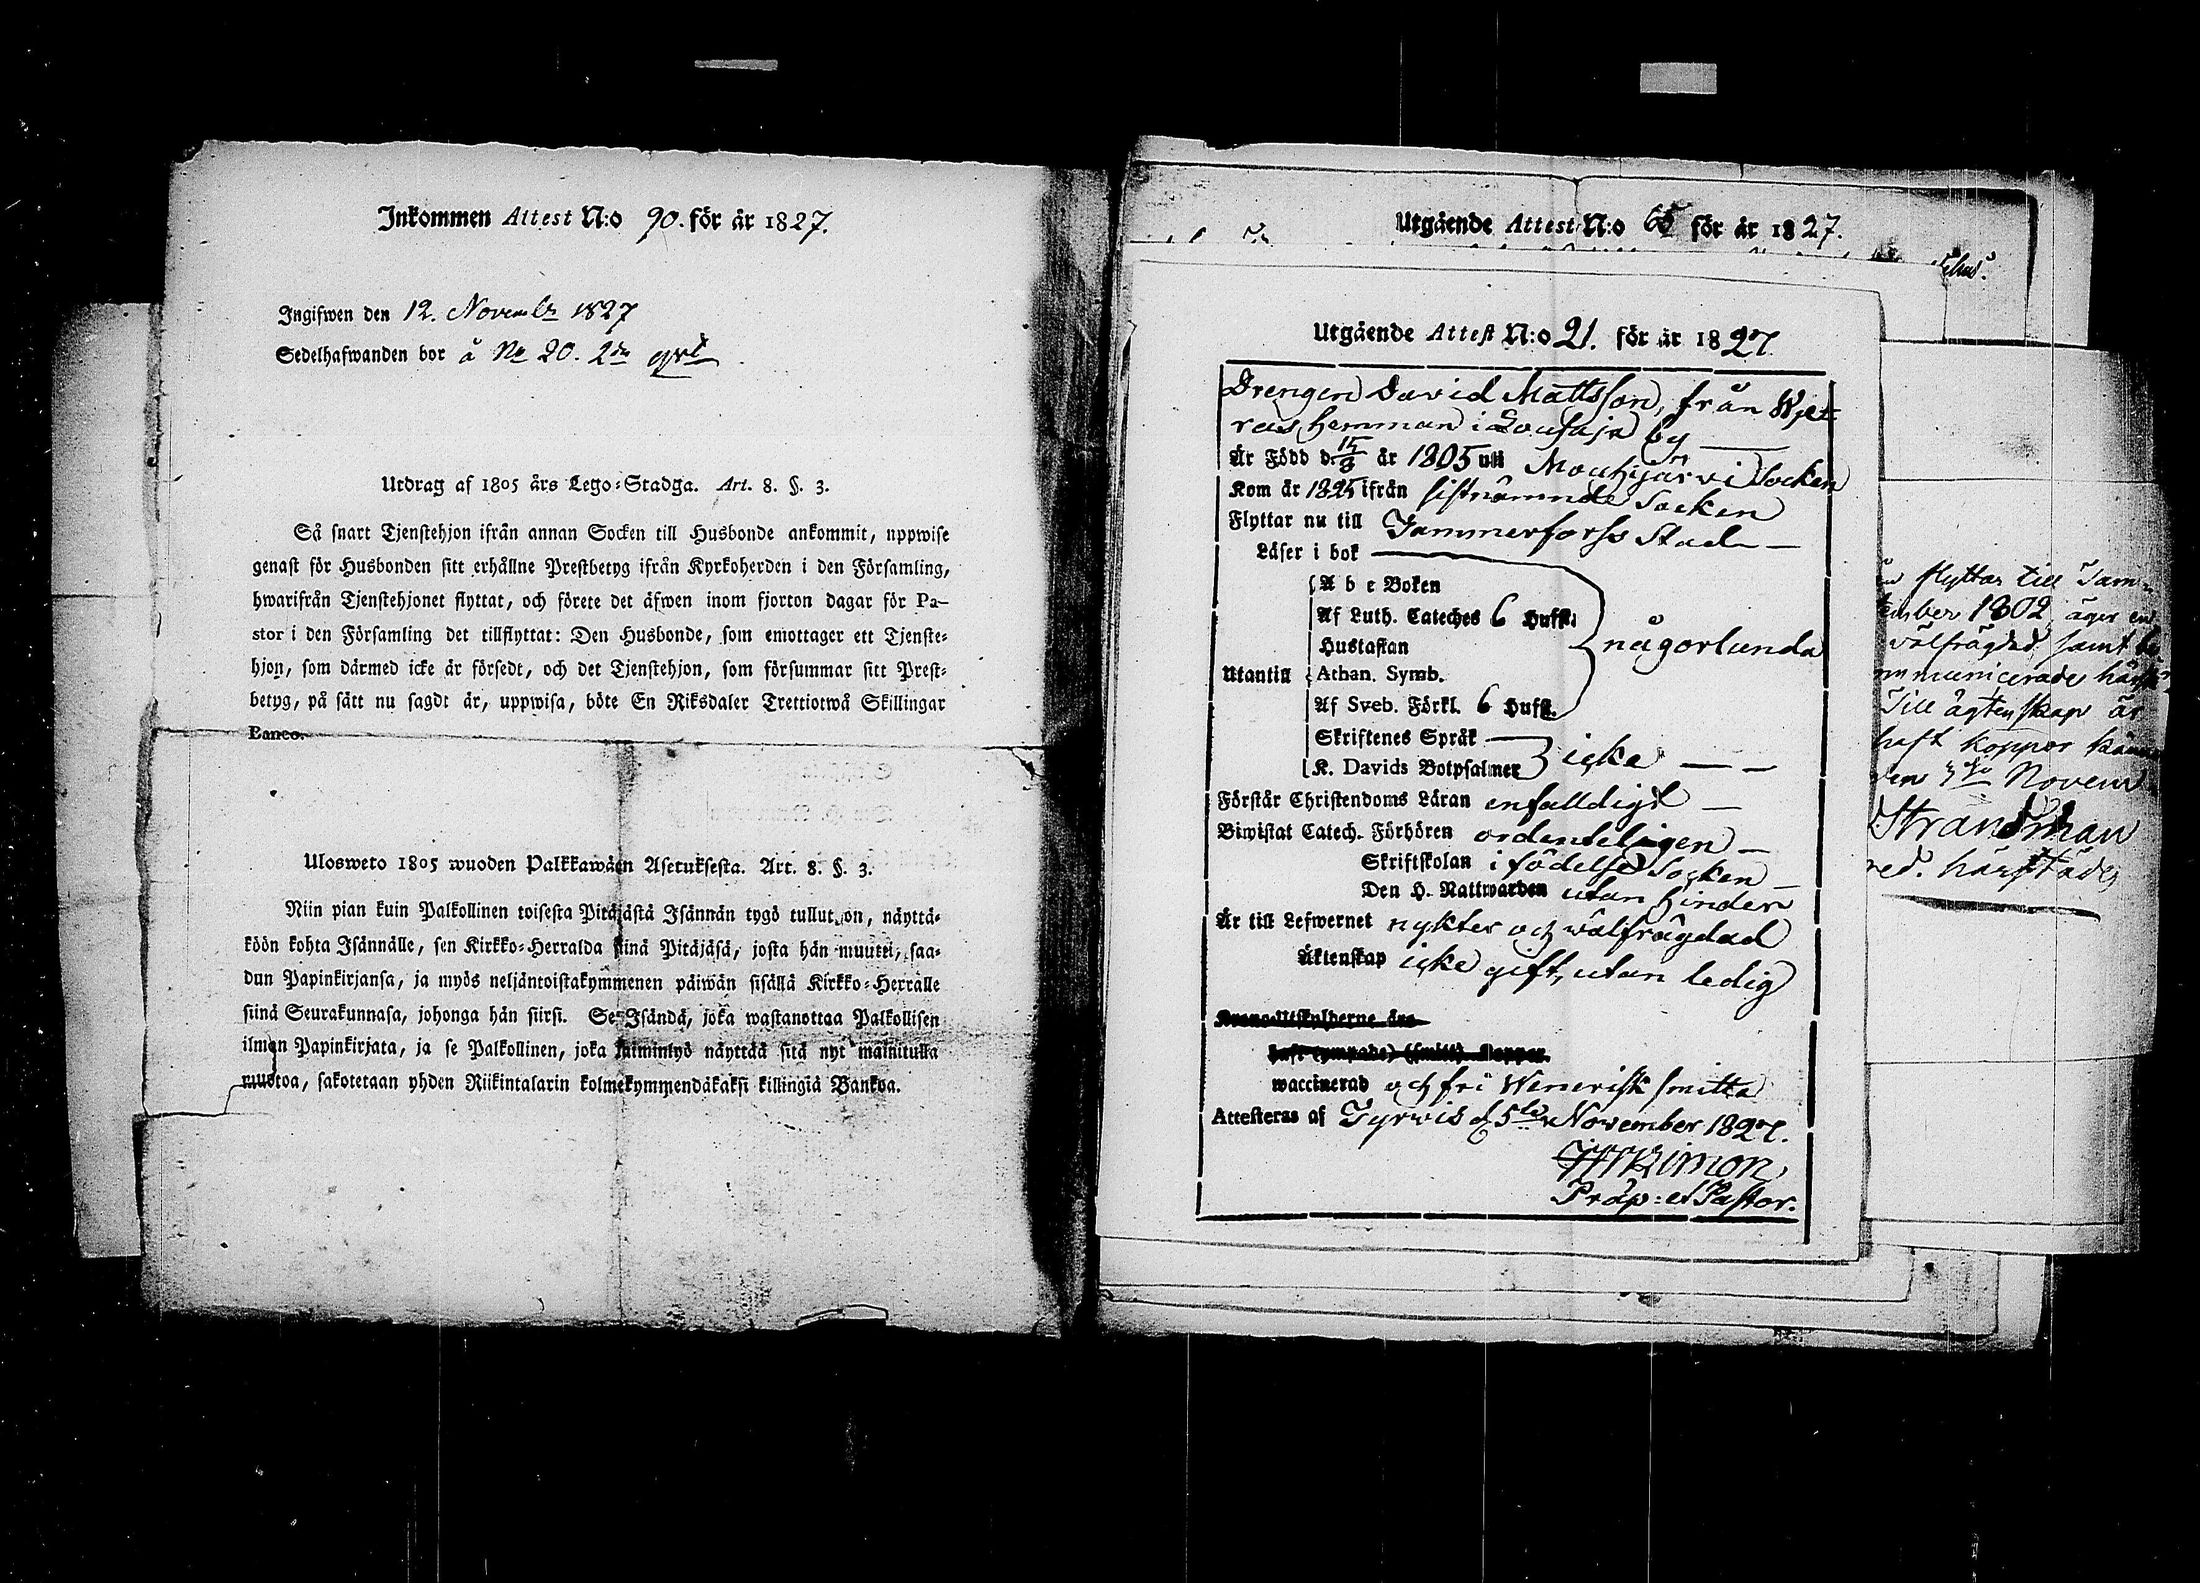 Inkommen Attest N:o 90. för år 1827.
Ingifwen den 12. Novembr 1827
Sedelhafwanden bor å No 20. 2dra qrt
Utdrag af 1805 års Lego-Stadga. Art. 8. §. 3.
Så snart Tjenstehjon ifrån annan Socken till Husbonde ankommit, uppwise
genast för Husbonden sitt erhållne Prestbetyg ifrån Kyrkoherden i den Församling,
hwarifrån Tjenstehjonet flyttat, och förete det äfwen inom fjorton dagar för Pa-
stor i den Församling det tillflyttat: Den Husbonde, som emottager ett Tjenste-
hjon, som därmed icke är försedt, och det Tjenstehjon, som försummar sitt Prest-
betyg, på sätt nu sagdt är, uppwisa, böte En Riksdaler Trettiotwå Skillingar
Banco.
Ulosweto 1805 wuoden Palkkawäen Asetuksesta. Art. 8. §. 3.
Niin pian kuin Palkollinen toisesta Pitäjästä Isännän tygö tullut on, näyttä-
köön kohta Isännälle, sen Kirkko-Herralda siinä Pitäjäsä, josta hän muutti, saa-
dun Papinkirjansa, ja myös neljäntoistakymmenen päiwän sisällä Kirkko-Herralle
siinä Seurakunnasa, johonga hän siirsi. Se Isändä, joka wastanottaa Palkollisen
ilman Papinkirjata, ja se Palkollinen, joka laiminlyö näyttää sitä nyt mainitulla
muotoa, sakotetaan yhden Riikintalarin kolmekymmendäkaksi killingiä Bankoa.
Utgående Attest N:o 65 för år 1827.
Utgående Attest N:o 91. för år 1827
Drengen David Mattsson, från
ras hemman i by
Är Född d. 15/8 år 1805 uti Mouhijärvi Socken
Kom år 1825 ifrån sistnämnde Socken
Flyttar nu till Tammerforss Stad
Läser i bok
A b c Boken
Af Luth. Cateches 6 Hufst.
Hustaflan någorlunda
Utantill Athan. Symb.
Af Sveb. Förkl. 6 Hufst.
Skriftenes Språk
K. Davids Botpsalmer icke
Förstår Christendoms Läran enfalldigt
Biwistat Catech. Förhören ordenteligen
Skriftskolan i födelse Socken
Den H. Nattwarden utan hinder
Är till Lefwernet nykter och wälfrägdad
Äktenskap icke gift, utan ledig
waccinerad och fri Wenerisk smitta
Attesteras af Tyrwis d. 5te November 1827.
Präp: et Pastor.
flyttar till Tam-
tember 1802 äger en
välfrägdad samt be
mmunicerade härst
Till ägtenskap är
haft koppor
den 3dje Novem
Strandman
red. härstädes